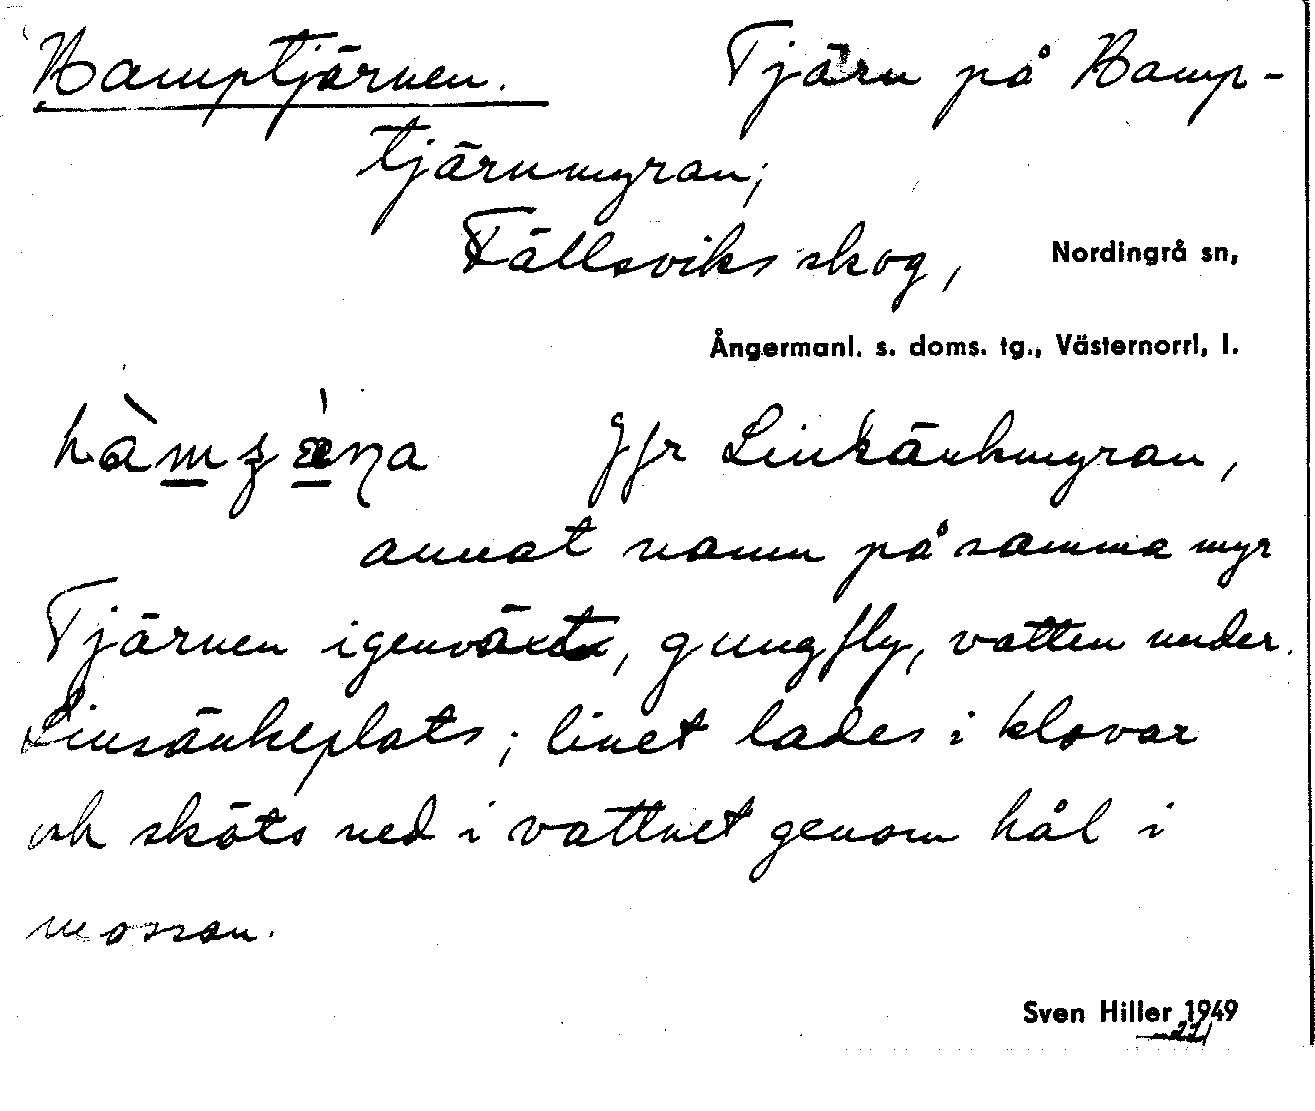 Hamptjärnen. Tjärn på Hamp-
tjärnmyran;
Fällsviks skog, Nordingrå sn,
Ångermanl. s. doms. tg., Västernorrl. l.
Jfr Linsänkmyran,
annat namn på samma myr
Tjärnen igenväxt, gungfly, vatten under.
Linsänkeplats; linet lades i klovar
och sköts ned i vattnet genom hål i
mossan.
Sven Hiller 1949